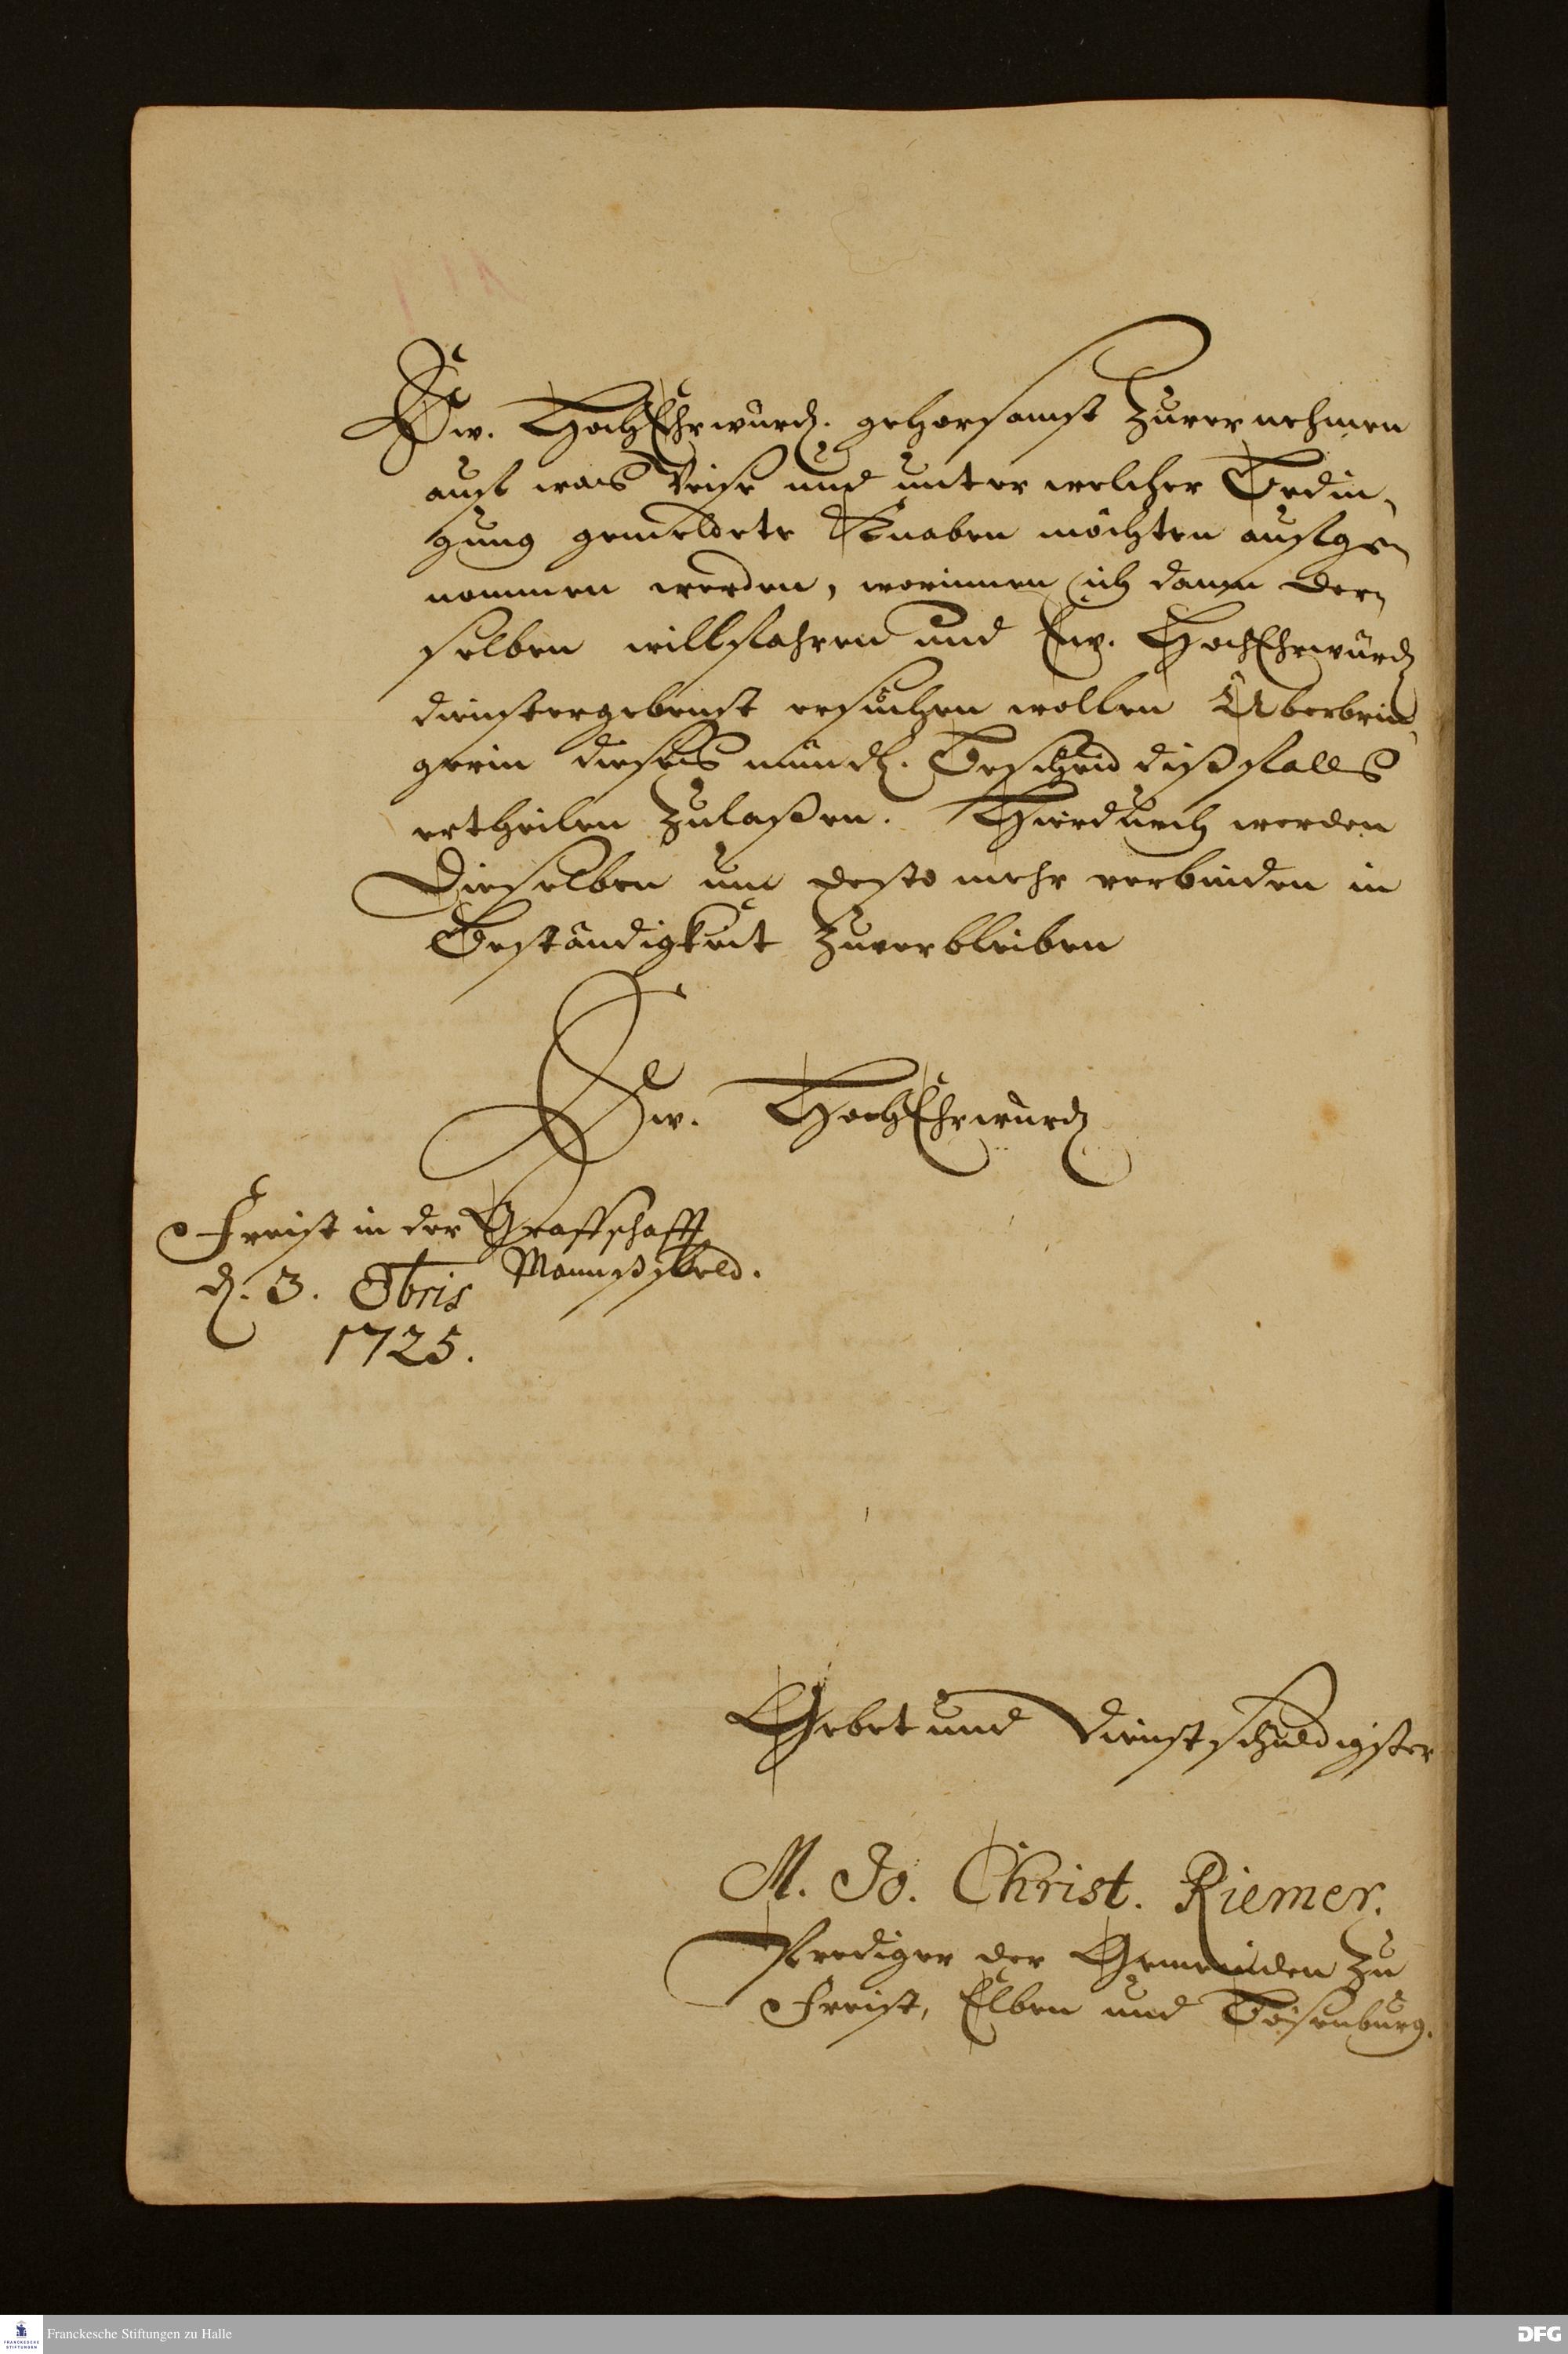 Ew. HochEhrwürd. gehorsamst zuvernehmen
auff was Weise und unter welcher Bedin-
gung gemeldete Knaben möchten auffge-
nommen werden, worinnen ich dann der-
selben willfahren und Ew. HochEhrwürd
dienstergebenst ersuchen wollen Uberbrin-
gerin dieses mündl. Bescheid dißfalls
ertheilen zulaßen. Hierdurch werden
Dieselben um desto mehr verbinden in
Beständigkeit zuverbleiben
Ew. HochEhrwürd
Freist in der Graffschafft
Mannßfeld.
d. 3. 8bris
1725.
Gebet und Dienstschuldigster
M. Jo. Christ. Riemer.
Prediger der Gemeinden zu
Freist, Elben und Bösenburg.
Franckesche Stiftungen zu Halle
DFG